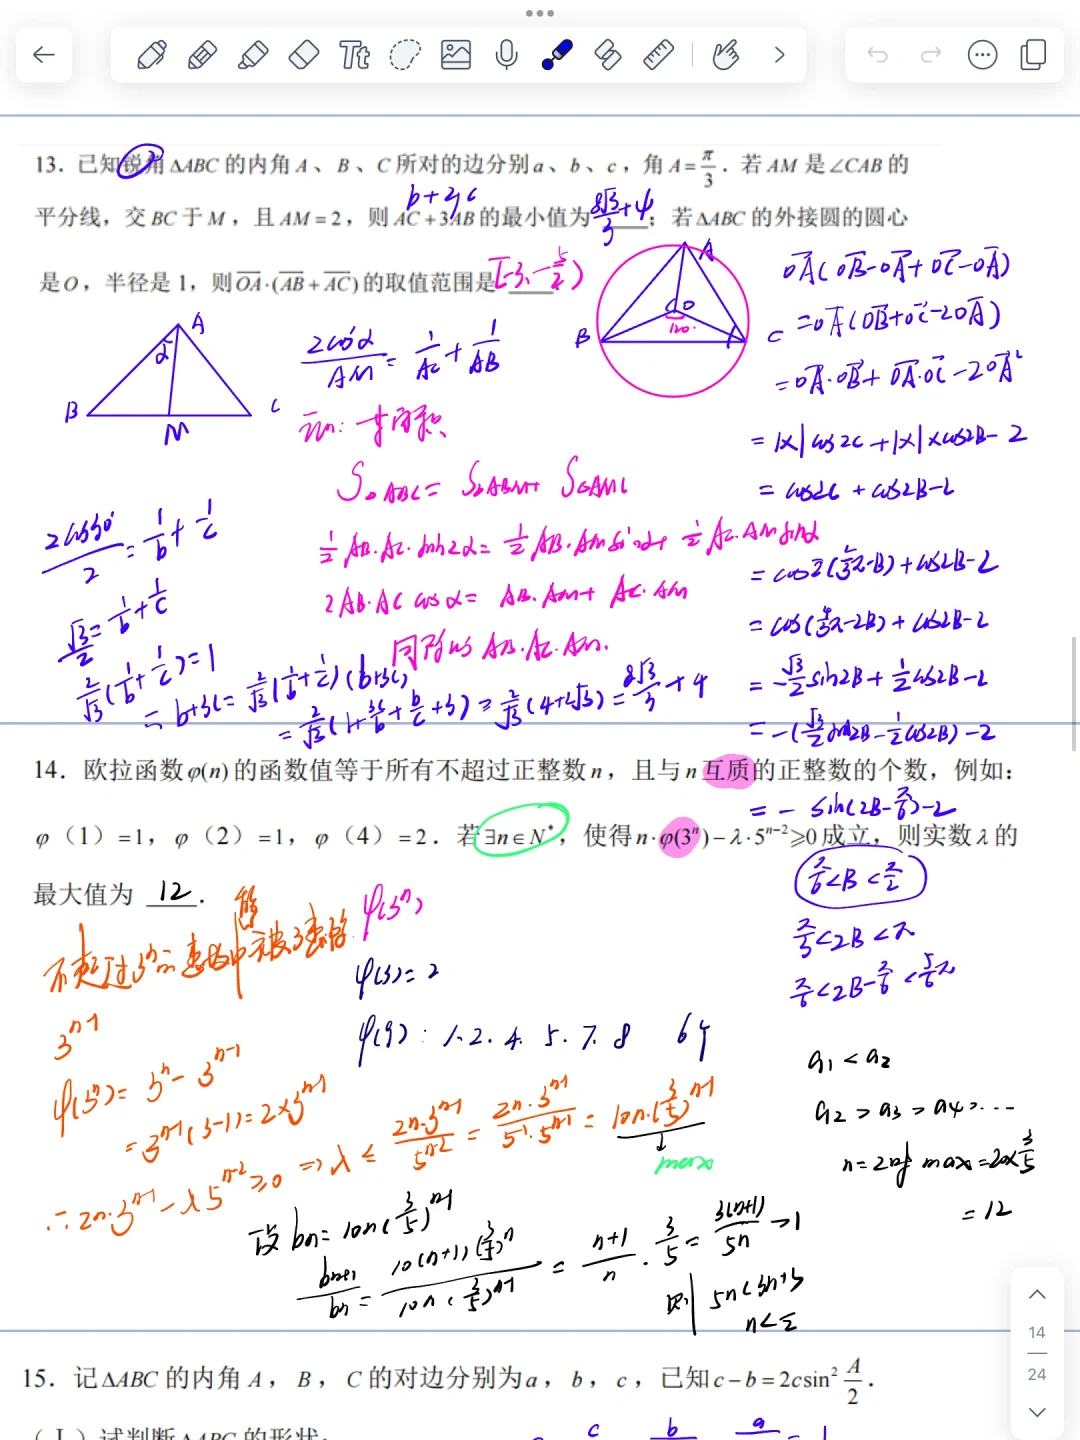 13. 已知锐角 ΔABC 的内角 A、B、C 所对的边分别 a、b、c，角 A=π/3．若 AM 是∠CAB 的
b+3c
平分线，交 BC 于 M，且 AM=2，则 AC+3AB 的最小值为 8√3/3+4；若 ΔABC 的外接圆的圆心
是 O，半径是 1，则 OA·(AB+AC) 的取值范围是 [-3,-5/2)
A
α
B
M
C
2cosα/AM = 1/AC + 1/AB
S△ABC = S△ABM + S△AMC
1/2 AB·AC·sin2α = 1/2 AB·AM sinα + 1/2 AC·AM sinα
2AB·AC cosα = AB·AM + AC·AM
同除以 AB·AC·AM.
2cos30°/2 = 1/b + 1/c
√3/2 = 1/b + 1/c
2/√3(1/b + 1/c) = 1
b+3c = 2/√3(1/b + 1/c)(b+3c)
= 2/√3(1+3c/b+b/c+3) ≥ 2/√3(4+2√3) = 8√3/3+4
A
O
120°
B
C
OA(OB-OA+OC-OA)
=OA(OB+OC-2OA)
=OA·OB+OA·OC-2OA²
=1×1cos2C+1×1×cos2B-2
=cos2C+cos2B-2
=cos2(2/3π-B)+cos2B-2
=cos(4/3π-2B)+cos2B-2
=-√3/2sin2B+1/2cos2B-2
=-(√3/2sin2B-1/2cos2B)-2
=-sin(2B-π/6)-2
π/6<B<π/2
π/3<2B<π
π/6<2B-π/6<5/6π
14. 欧拉函数 φ(n) 的函数值等于所有不超过正整数 n，且与 n 互质的正整数的个数，例如：
φ（1）=1，φ（2）=1，φ（4）=2．若∃n∈N*，使得 n·φ(3ⁿ)-λ·5ⁿ⁻²≥0成立，则实数 λ 的
最大值为 12．
不超过3ⁿ
3ⁿ⁻¹
φ(3ⁿ)=3ⁿ-3ⁿ⁻¹
=3ⁿ⁻¹(3-1)=2×3ⁿ⁻¹
φ(3ⁿ)
φ(3)=2
φ(9): 1.2.4.5.7.8 6个
∴2n·3ⁿ⁻¹-λ5ⁿ⁻²≥0 ⇒ λ ≤ 2n·3ⁿ⁻¹/5ⁿ⁻² = 2n·3ⁿ⁻¹/5⁻¹·5ⁿ⁻¹ = 10n·(3/5)ⁿ⁻¹
max
设 bn=10n(3/5)ⁿ⁻¹
bn+1/bn = 10(n+1)(3/5)ⁿ/10n(3/5)ⁿ⁻¹ = n+1/n · 3/5 = 3(n+1)/5n >1
则 5n<3n+3
a₁<a₂
a₂>a₃>a₄>…
n=2时 max=20×3/5
=12
15. 记ΔABC 的内角 A，B，C 的对边分别为 a，b，c，已知 c-b=2csin²A/2．
（Ⅰ）试判断 ΔABC 的形状；
14
24